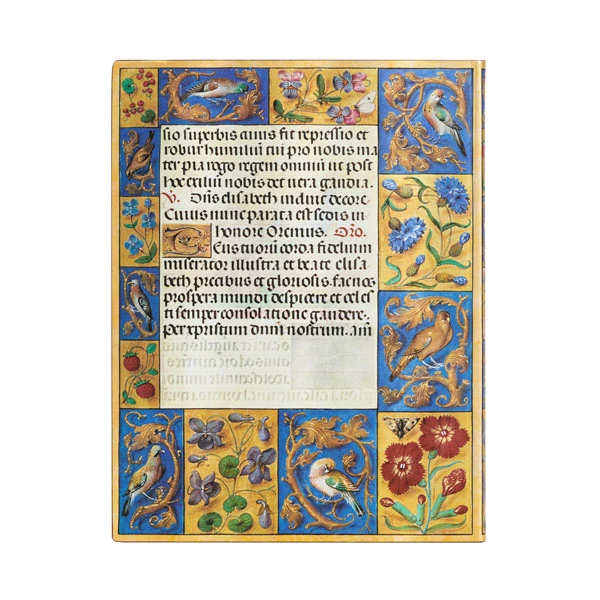 sio superbis cuius fit repressio et
robur humiliū cui pro nobis ma
ter pia rogo regem omniū ut post
hoc exiliū nobis det vera gaudia.
V. Ōns elisabeth indue decore
Cuius nunc parata est sedis in
honore Oremus. Oro.
Eus tuorū corda fidelium
miserator illustra et beate elisa
beth precibus et gloriosis. fac nos
prospera mundi despicere et celes
ti semper consolatione gaudere.
Per xpristum dnm nostrum. am̄